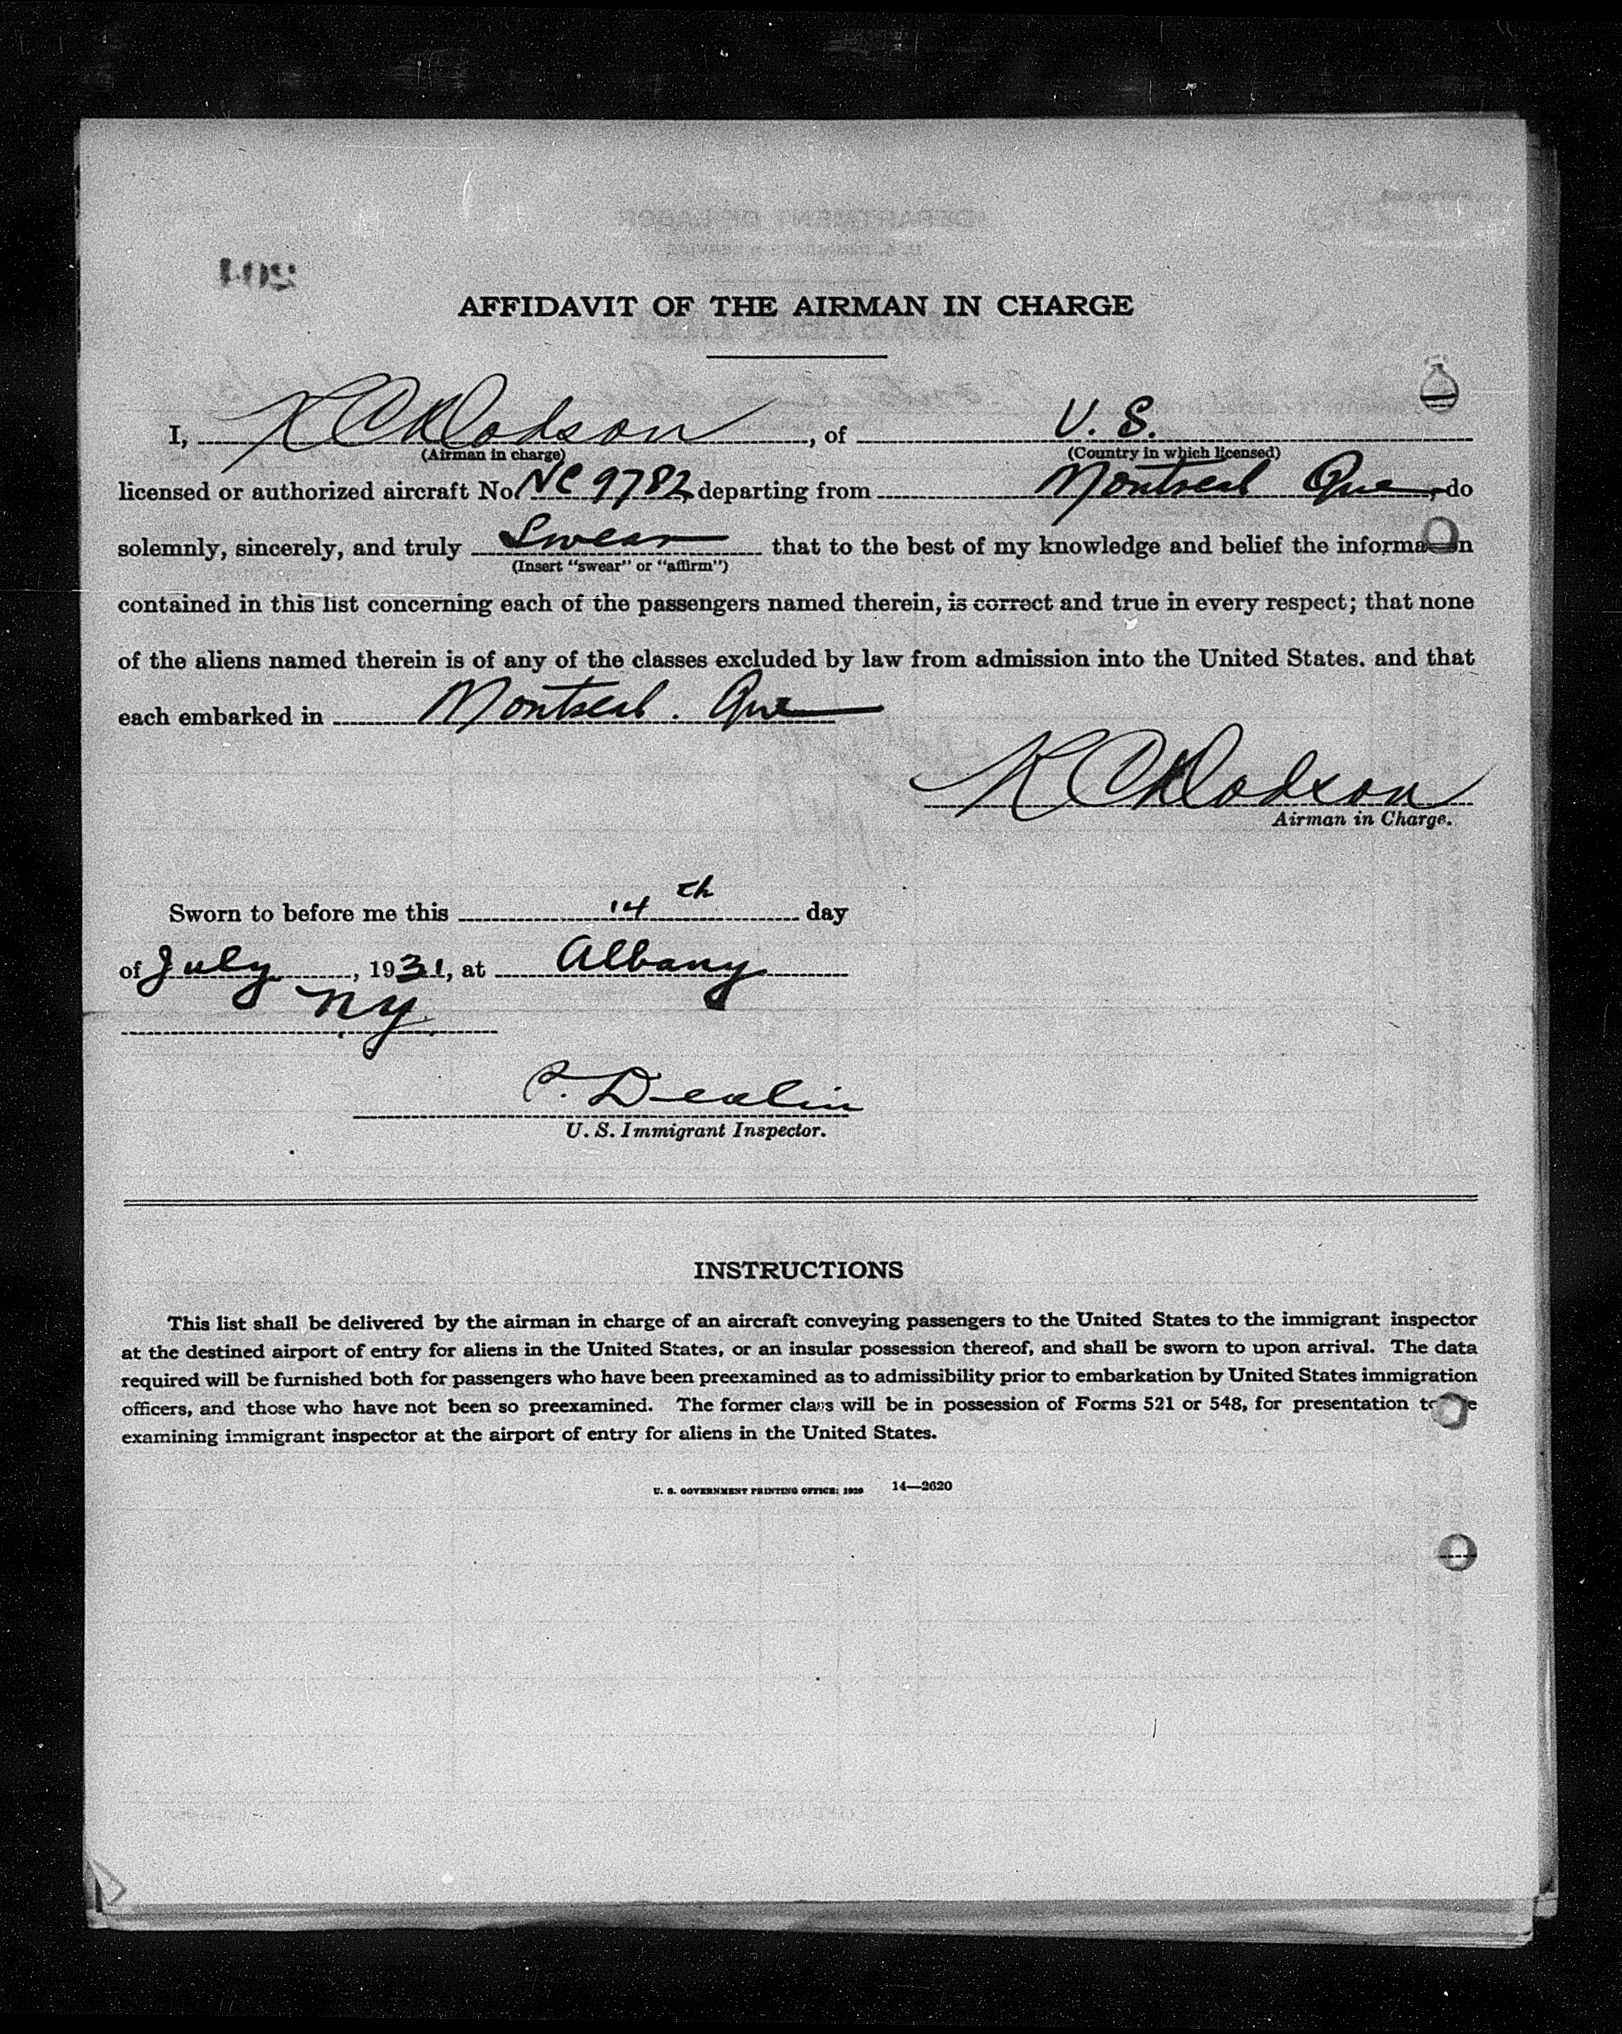 AFFIDAVIT OF THE AIRMAN IN CHARGE
I, K C Dodson, of U. S.
(Airman in charge) (Country in which licensed)
licensed or authorized aircraft No. NC 9782, departing from Montreal Que, do
solemnly, sincerely, and truly Swear that to the best of my knowledge and belief the information
(Insert "swear" or "affirm")
contained in this list concerning each of the passengers named therein, is correct and true in every respect; that none
of the aliens named therein is of any of the classes excluded by law from admission into the United States. and that
each embarked in Montreal. Que
K C Dodson
Airman in Charge.
Sworn to before me this 14th day
of July, 1931, at Albany
NY.
U. S. Immigrant Inspector.
INSTRUCTIONS
This list shall be delivered by the airman in charge of an aircraft conveying passengers to the United States to the immigrant inspector
at the destined airport of entry for aliens in the United States, or an insular possession thereof, and shall be sworn to upon arrival. The data
required will be furnished both for passengers who have been preexamined as to admissibility prior to embarkation by United States immigration
officers, and those who have not been so preexamined. The former class will be in possession of Forms 521 or 548, for presentation to the
examining immigrant inspector at the airport of entry for aliens in the United States.
U. S. GOVERNMENT PRINTING OFFICE: 1929 14—2620